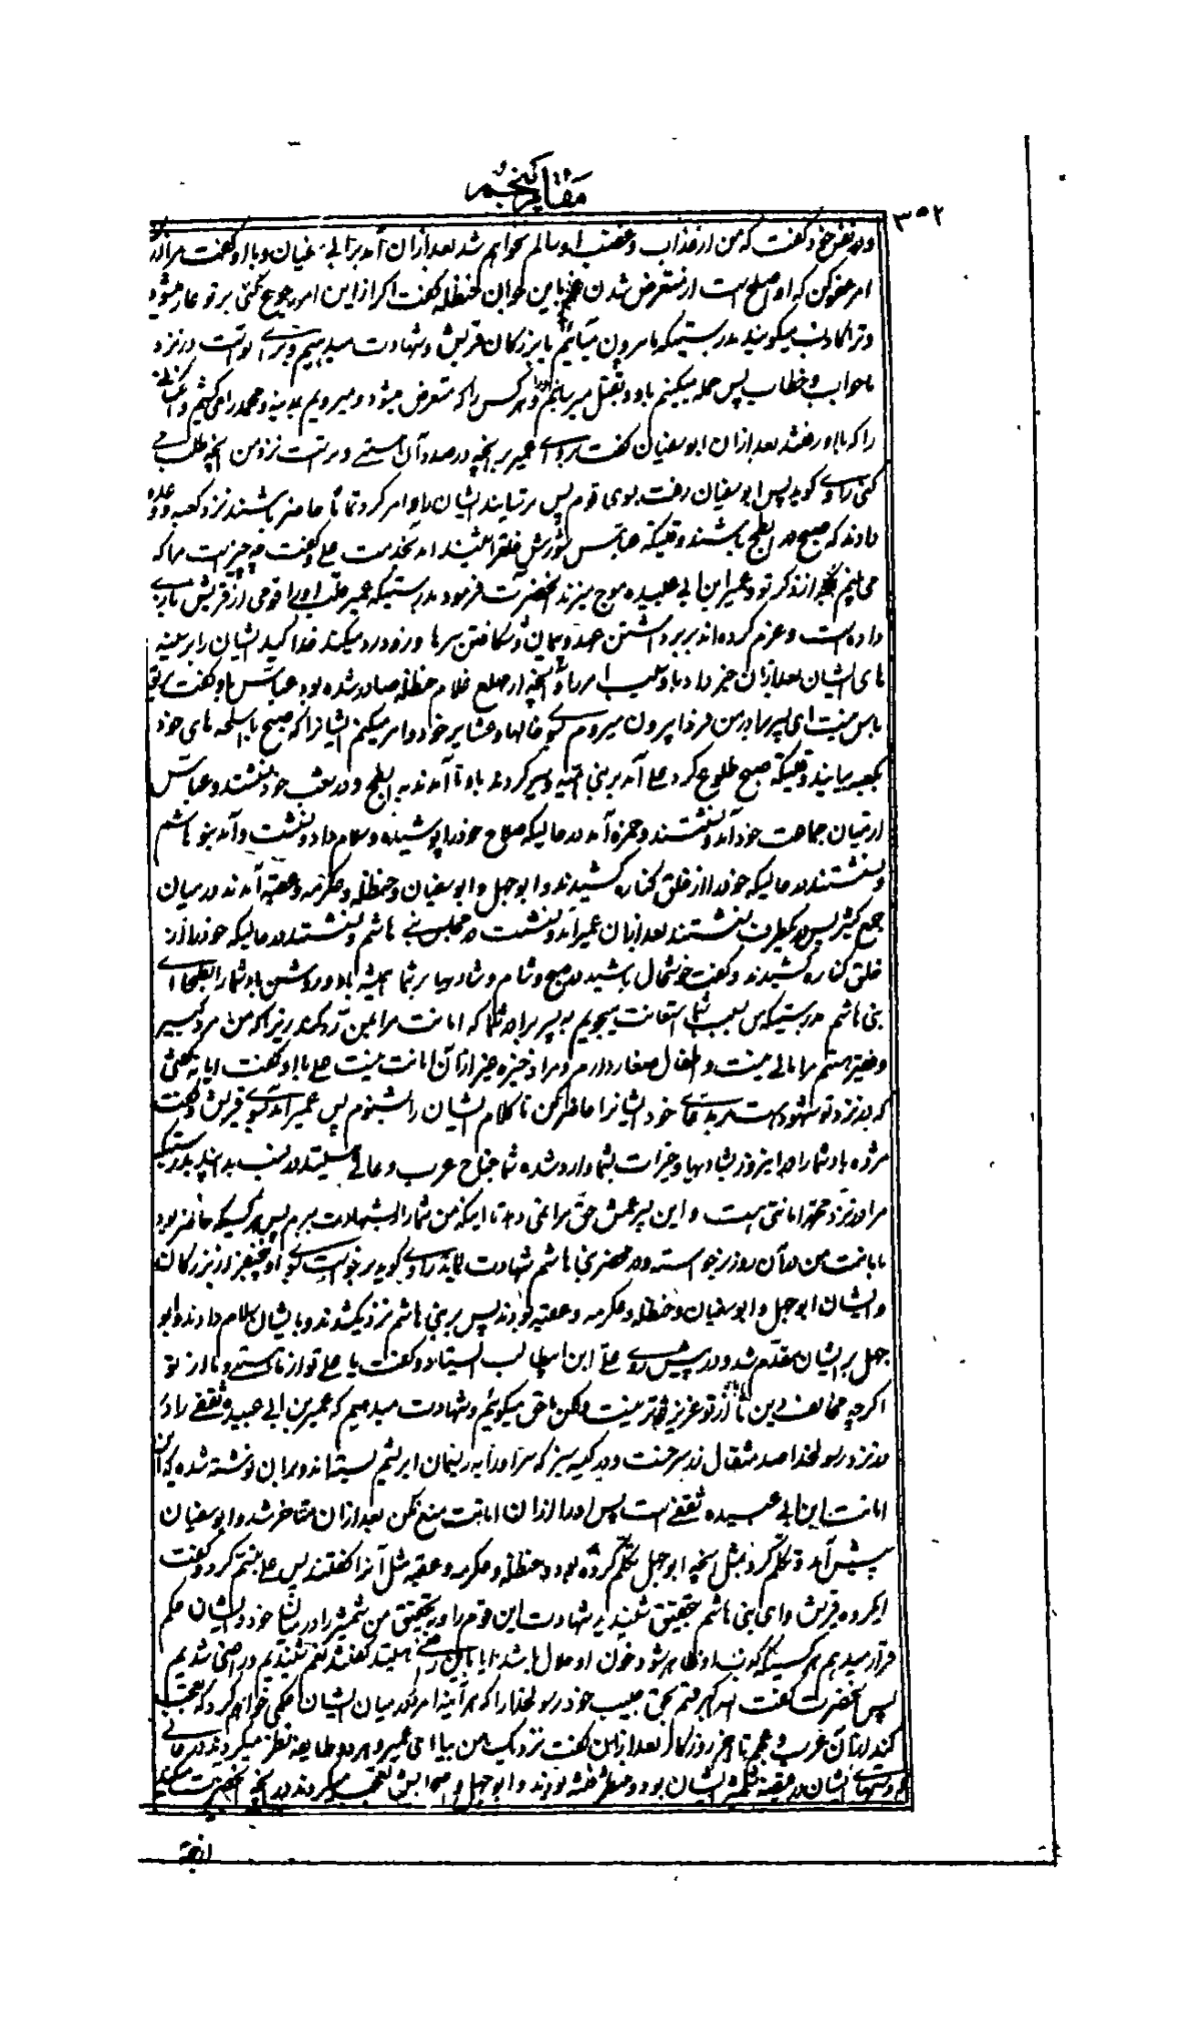 مقاله پنجم
۳۵۲
و در نفس خود گفت که من از عذاب و غضب او سالم نخواهم شد بعد ازان آمد نزد ابی سفیان و با او گفت مرا ازین
امر عفو کن که او اصلح است از متعرض شدن باین جوان حنظله گفت اگر از این امر رجوع کنی بر تو عار میشود
و ترا کاذب میگویند بدرستیکه ما بیرون میآئیم با بزرگان قریش و شهادت میدهیم و برای تو است در نزد
ما جواب و خطاب پس حمله میکنیم باو و بقتل میرسانیم و هر کس را که متعرض میشود و میرویم بمدینه و محمد را می کشیم و
را که با او رفتند بعد ازان ابوسفیان گفت برو ای عمیر بر آنچه در صدد آن هستی و برتست نزد من آنچه طلب می
کنی راوی گوید پس ابوسفیان رفت بسوی قوم پس ایشان را امر کرد تا حاضر باشند نزد کعبه و وعده
دادند که صبح در ابطح باشند وقتیکه عباس شورش خلق را شنید آمد بخدمت علی و گفت چه چیز است مرا که
می بینم از ذکر تو و عمیر ابن ابی عبیده موج میزند آنحضرت فرمود بدرستیکه عمیر قومی از قریش
داده است و عزم کرده اند بر برداشتن عهد و پیمان و شکافتن سرها و زود رد میکند خدا کید ایشان را بر سینه
های ایشان بعد ازان خبر داد باو سبب امر را و آنچه از صلع غلام حنظله صادر شده بود عباس باو گفت بر تو
باس نیست ای پسر برادر من فردا بیرون میروم بسوی خالها و عشایر خود و امر میکنم ایشانرا که صبح با اسلحه های خود
بکعبه بیایند وقتیکه صبح طلوع کرد علی آمد بر بنی امیه و سیر کردند باو تا آمدند به ابطح و در شعب خود نشستند و عباس
درمیان جماعت خود آمد و نشستند و حمزه آمد در حالیکه سلاح خود را پوشیده و سلام داد و نشست و آمد بنو هاشم
و نشستند در حالیکه خود را از خلق کناره کشیدند و ابوجهل و ابوسفیان و حنظله و عکرمه و عقبه آمدند درمیان
جمع کثیر پس در یکطرف نشستند بعد ازان عمیر آمد و نشست در مجلس بنی هاشم و نشستند در حالیکه خود را از
خلق کناره کشیدند و گفت خوشحال باشید در صبح و شام و شادیها بر شما همیشه باد و روشن باد شما را ابطحا ای
بنی هاشم بدرستیکه من بسبب شما استعانت میجویم به پسر برادر شما که امانت مرا بمن رد کند زیرا که من مرد کبیر
و فقیر هستم مرا مالی نیست و اطفال صغار دارم و مرا ذخیره غیر از آن امانت نیست علی با او گفت ایا نگفتی
که در نزد تو شهود است خود ایشانرا حاضر کن تا کلام ایشان را بشنوم پس عمیر آمد بسوی قریش و گفت
مژده باد شما را در این روز بشادیها و خیرات بشما وارد شده شما جناح عرب و عالی هستید در نسب بدانید بدرستیکه
مرا در نزد محمد امانتی است و این پسر عمش حق مرا نمی دهد تا اینکه من شما را بشهادت ببرم پس هر کسیکه حاضر بود
بامانت من در آن روز برخواسته و در محضر بنی هاشم شهادت نماید راوی گوید برخواست بسوی او پنج نفر از بزرگان
و ایشان ابوجهل و ابوسفیان و حنظله و عکرمه و عقبه بودند پس بر بنی هاشم نزدیک شدند و بایشان سلام دادند و ابو
جهل بر ایشان مقدم شد و در پیش روی علی ابن ابیطالب ایستاد و گفت یا علی تو از ما هستی و ما از تو
اگرچه مخالف دین ما از تو عزیزتر نیست ولکن ما حق میگوئیم و شهادت میدهیم که عمیر بن ابی عبیده ثقفی را
در نزد رسولخدا صد مثقال زر سرخست و در کیسه سبز که سر او را به ریسمان ابریشم بسته اند و بران نوشته شده که این
امانت ابن ابی عبیده ثقفی است پس او را ازان امانت منع نکن بعد ازان متاخر شد و ابوسفیان
پیش آمد و تکلم کرد مثل آنچه ابوجهل تکلم کرده بود و حنظله و عکرمه و عقبه مثل آنرا گفتند پس علی تبسم کرد و گفت
ای گروه قریش و ای بنی هاشم تحقیق شنیدید شهادت این قوم را و بتحقیق من شمشیر را درمیان خود و ایشان حکم
قرار میدهم هر کسیکه کذب او ظاهر شود خون او حلال باشد ایا باین راضی هستید گفتند نعم شنیدیم و راضی شدیم
پس آنحضرت گفت الله اکبر قسم بحق حبیب خود رسولخدا را که هر آینه امروز میان ایشان حکمی خواهم کرد که تعجب
کنند از آن عرب و عجم تا آخر روزگار بعد ازان گفت نزدیک من بیا ای عمیر و هر دو طایفه نظر میکردند در حالی
که دستهای ایشان در قبضه شمشیر ایشان بود و منتظر فتنه بودند و ابوجهل و اصحابش تعجب میکردند در آنچه آنحضرت میکند